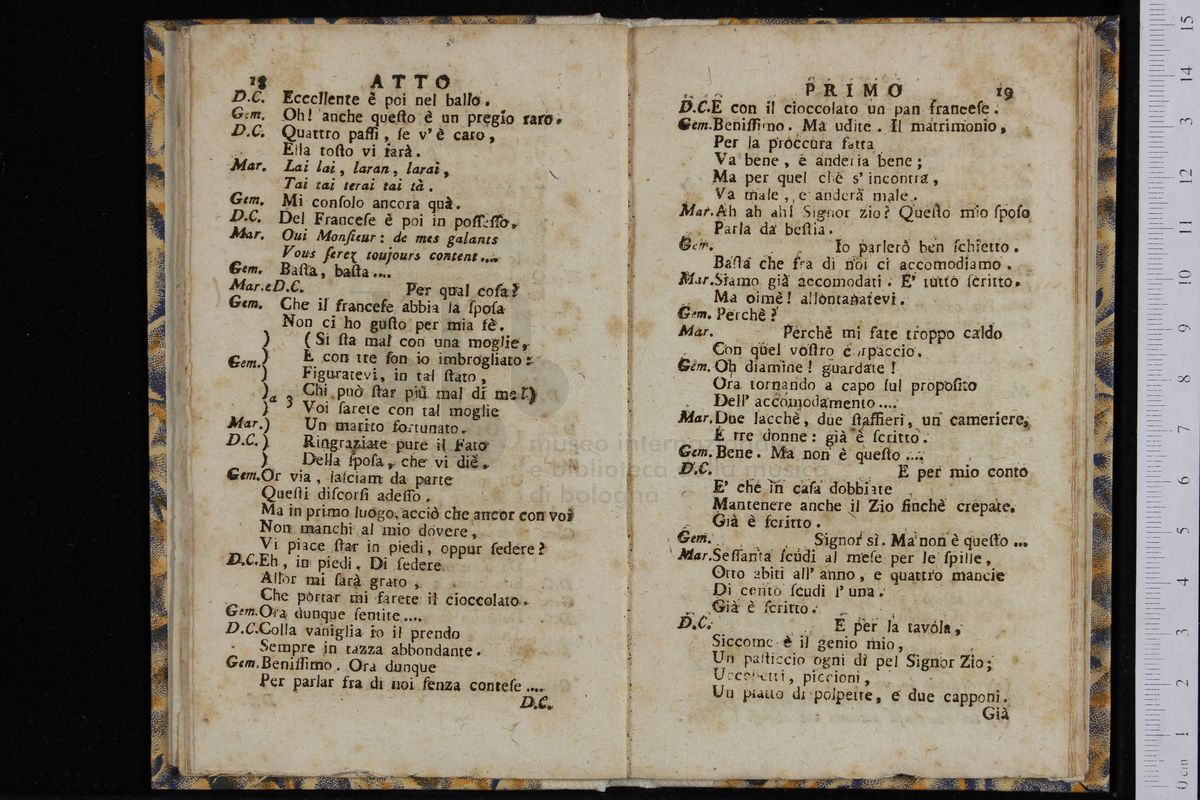 18 ATTO
D.C. Eccellente è poi nel ballo.
Gem. Oh! anche queſto è un pregio raro.
D.C. Quattro paſſi, ſe v'è caro,
Ella toſto vi farà.
Mar. Lai lai, laran, larai,
Tai tai terai tai tà.
Gem. Mi conſolo ancora quà.
D.C. Del Franceſe è poi in poſſeſſo.
Mar. Oui Monſieur: de mes galants
Vous ferez toujours content....
Gem. Baſta, baſta....
Mar.eD.C. Per qual coſa?
Gem. Che il franceſe abbia la ſpoſa
Non ci ho guſto per mia fè.
) (Si ſta mal con una moglie,
Gem.) E con tre ſon io imbrogliato:
) Figuratevi, in tal ſtato,
) a 3 Chi può ſtar più mal di me?)
) Voi ſarete con tal moglie
Mar.) Un marito fortunato.
D.C.) Ringraziate pure il Fato
) Della ſpoſa, che vi diè.
Gem. Or via, laſciam da parte
Queſti diſcorſi adeſſo.
Ma in primo luogo, acciò che ancor con voi
Non manchi al mio dovere,
Vi piace ſtar in piedi, oppur ſedere?
D.C. Eh, in piedi. Di ſedere
Allor mi ſarà grato,
Che portar mi farete il cioccolato.
Gem. Ora dunque ſentite....
D.C. Colla vaniglia io il prendo
Sempre in tazza abbondante.
Gem. Beniſſimo. Ora dunque
Per parlar fra di noi ſenza conteſe....
D.C.
PRIMO 19
D.C. E con il cioccolato un pan franceſe.
Gem. Beniſſimo. Ma udite. Il matrimonio,
Per la proccura fatta
Va bene, e anderia bene;
Ma per quel che s'incontra,
Va male, e anderà male.
Mar. Ah ah ah! Signor zio? Queſto mio ſpoſo
Parla da beſtia.
Gem. Io parlerò ben ſchietto.
Baſta che fra di noi ci accomodiamo.
Mar. Siamo già accomodati. E' tutto ſcritto.
Ma oimè! allontanatevi.
Gem. Perchè?
Mar. Perchè mi fate troppo caldo
Con quel voſtro corpaccio.
Gem. Oh diamine! guardate!
Ora tornando a capo ſul propoſito
Dell' accomodamento....
Mar. Due lacchè, due ſtaffieri, un cameriere,
E tre donne: già è ſcritto.
Gem. Bene. Ma non è queſto....
D.C. E per mio conto
E' che in caſa dobbiate
Mantenere anche il Zio finchè crepate.
Già è ſcritto.
Gem. Signor sì. Ma non è queſto...
Mar. Seſſanta ſcudi al meſe per le ſpille,
Otto abiti all' anno, e quattro mancie
Di cento ſcudi l'una.
Già è ſcritto.
D.C. E per la tavola,
Siccome è il genio mio,
Un paſticcio ogni dì pel Signor Zio;
Uccelletti, piccioni,
Un piatto di polpette, e due capponi.
Già
museo internazionale
e biblioteca della musica
di bologna
0 cm 1 2 3 4 5 6 7 8 9 10 11 12 13 14 15